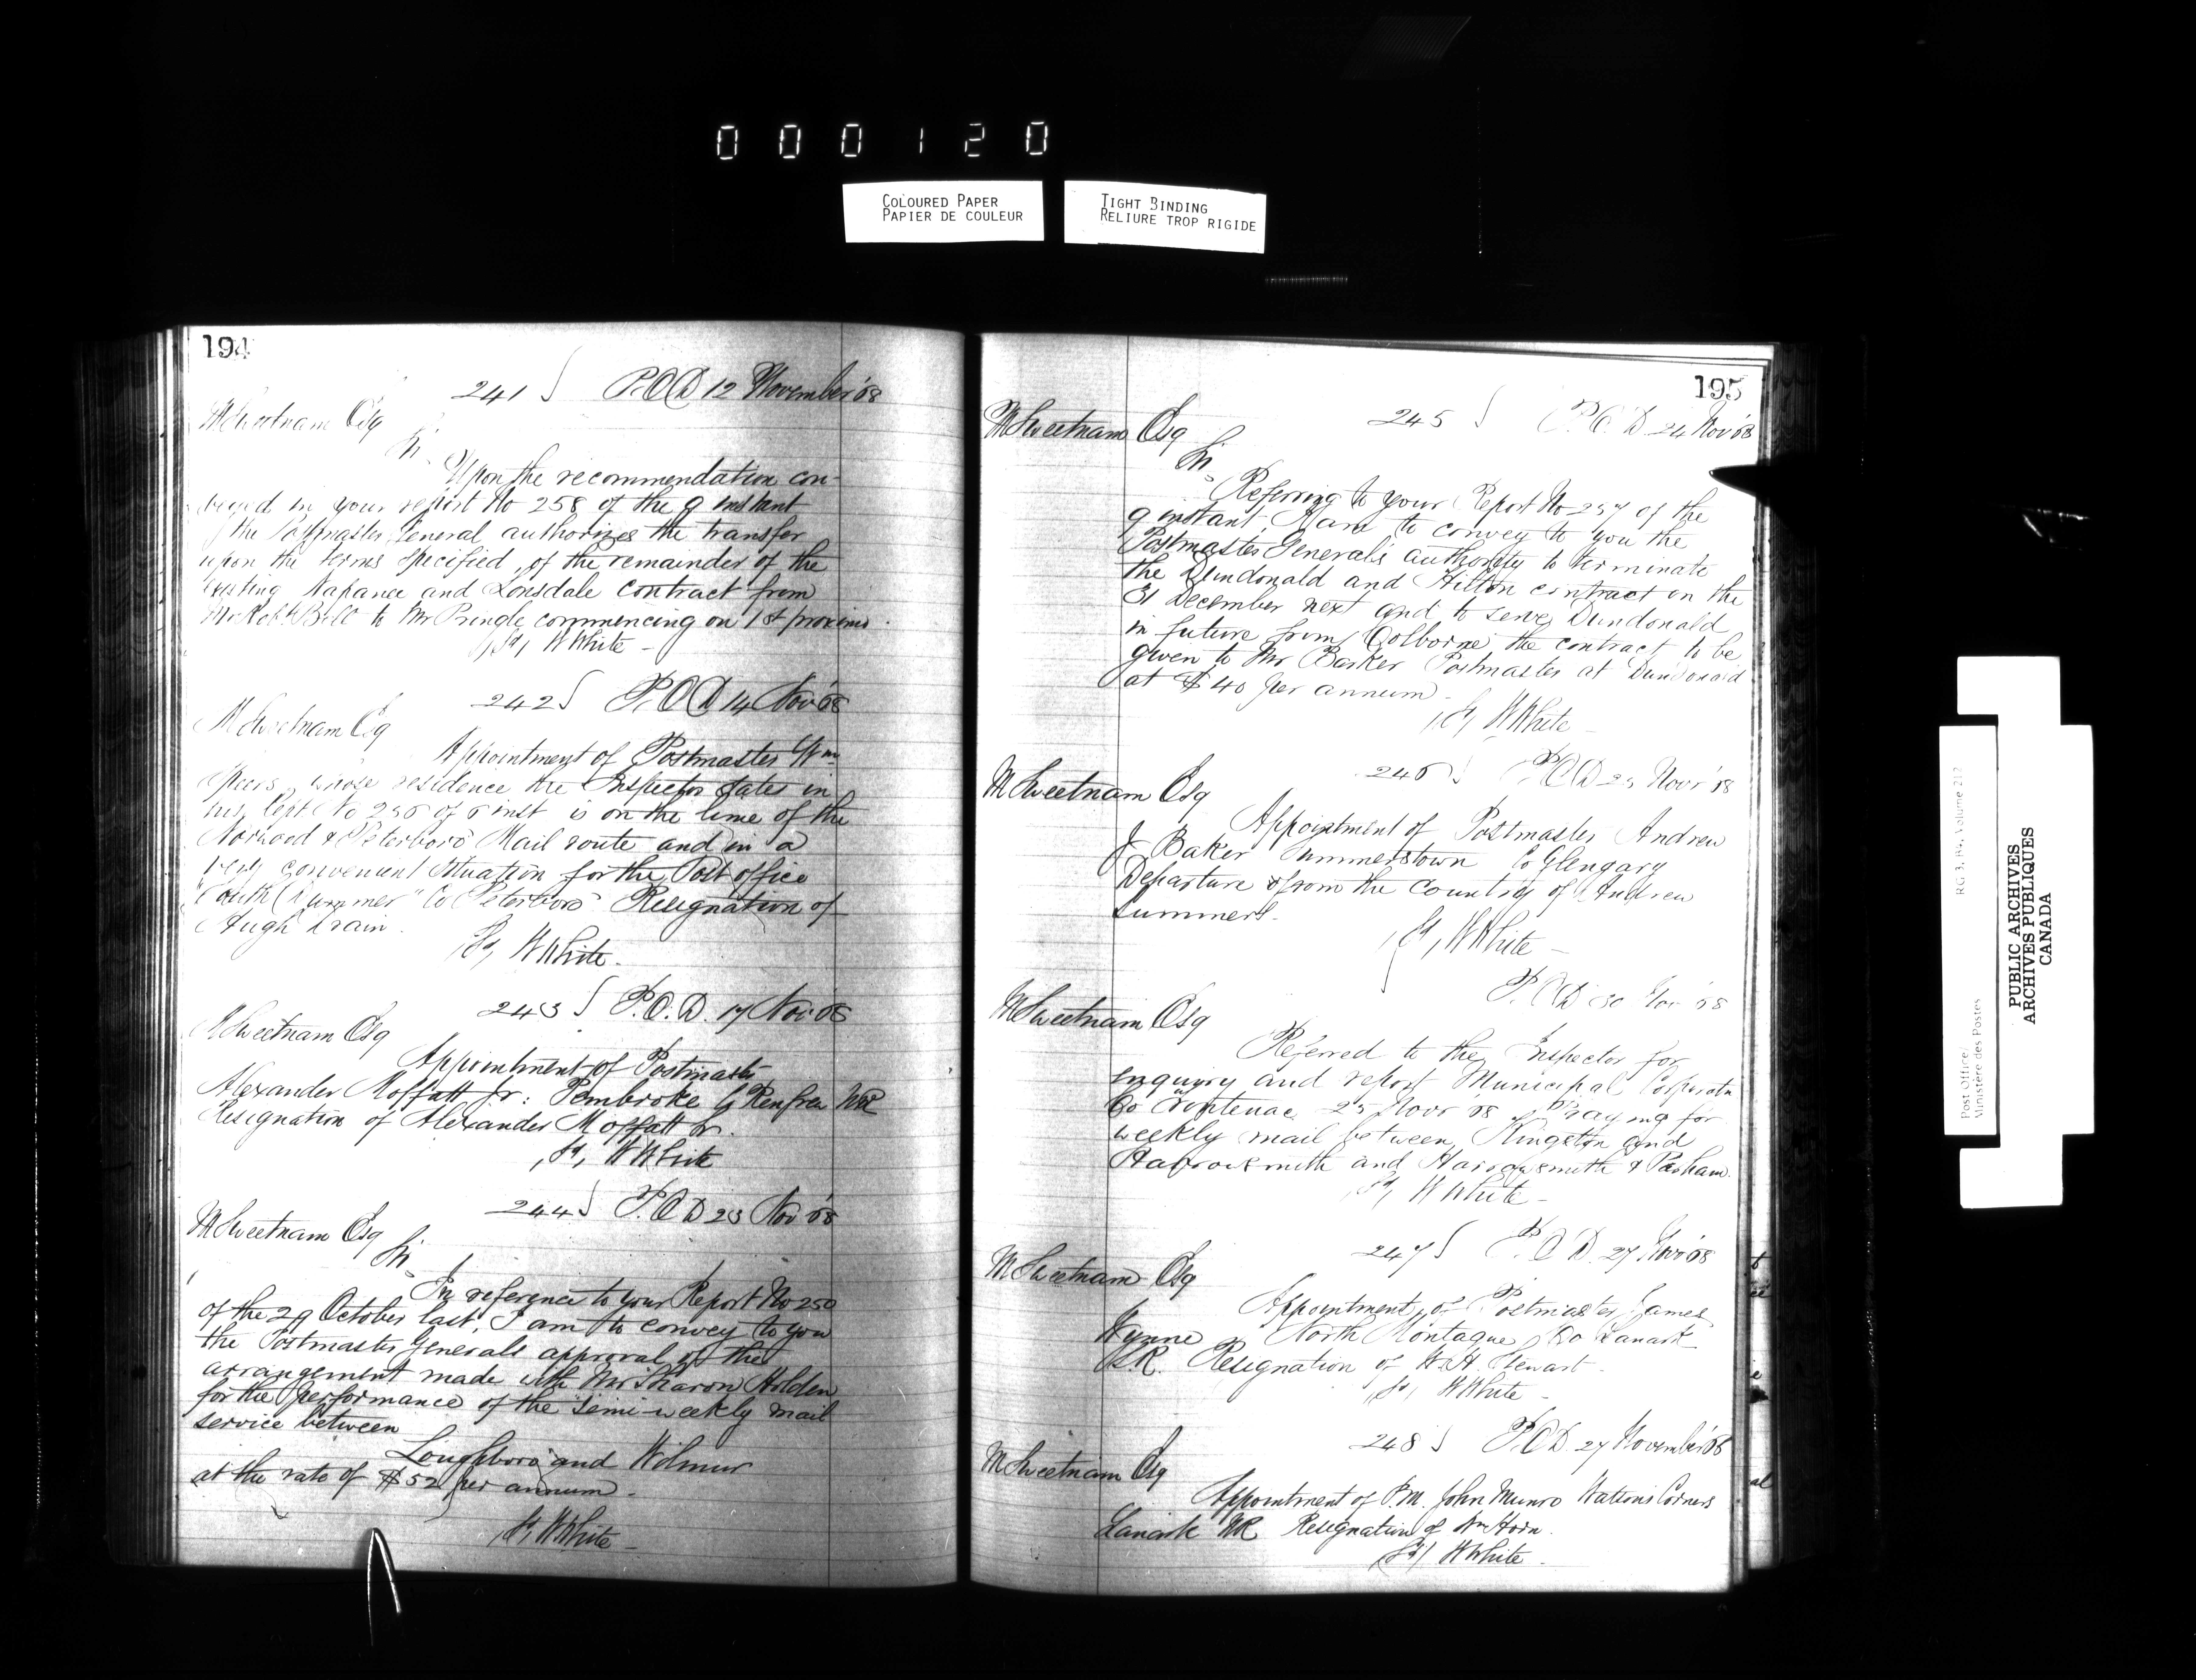 000120
COLOURED PAPER
PAPIER DE COULEUR
TIGHT BINDING
RELIURE TROP RIGIDE
194
241 P.O.D 12 November '68
M Sweetnam Esq
Sir
Upon the recommendation con-
veyed in your report No 258 of the 9 instant
the Postmaster General authorizes the transfer
upon the terms specified, of the remainder of the
existing Napanee and Lonsdale contract from
Mr Robt Bell to Mr Pringle commencing on 1st proximo.
W White
242 P.O.D 14 Nov '68
M Sweetnam Esq
Appointment of Postmaster Wm
Speers, whose residence the Inspector states in
his Rept No 256 of 6 inst is on the line of the
Norwood & Peterboro Mail route and in a
very convenient situation for the Post office
"South Dummer" Co Peterboro Resignation of
Hugh Drain.
W White.
243 P.O.D. 17 Nov '68
M Sweetnam Esq
Appointment of Postmaster
Alexander Moffatt Jr: Pembroke Co Renfrew NR
Resignation of Alexander Moffatt Sr.
W White
244 P.O D 23 Nov '68
M Sweetnam Esq
Sir
In reference to your Report No 250
of the 29 October last, I am to convey to you
the Postmaster Generals approval of the
arrangement made with Mr Sharon Holden
for the performance of the semi-weekly mail
service between
Loughboro and Wilmur
at the rate of $52 per annum.
W White
195
245 P.O.D 24 Nov '68
M Sweetnam Esq
Sir
Referring to your Report No 257 of the
9 instant, I am to convey to you the
Postmaster General's authority to terminate
the Dundonald and Hilton contract on the
31 December next and to serve Dundonald
in future from Colborne the contract to be
given to Mr Barker Postmaster at Dundonald
at $40 per annum
W White
246 P.O.D Novr '68
M Sweetnam Esq
Appointment of Postmaster Andrew
J Baker Summerstown Co Glengary
Departure from the country of Andrew
Summers.
W White
P.O.D 30 Nov '68
M Sweetnam Esq
Referred to the Inspector for
enquiry and report Municipal Corporatn
Co Frontenac 25 Novr '68 Praying for
weekly mail between Kingston and
Harrowsmith and Harrowsmith & Parham.
W White
247 P.O.D. 27 Nov '68
M Sweetnam Esq
Appointment of Postmaster James
Wynne North Montague Co Lanark
S.R. Resignation of W.H. Stewart.
W White
248 P.O.D 27 November '68
M Sweetnam Esq
Appointment of P.M. John Munro Watsons Corners
Lanark NR Resignation of Wm Horn.
W White.
Post Office/
Ministère des Postes
PUBLIC ARCHIVES
ARCHIVES PUBLIQUES
CANADA